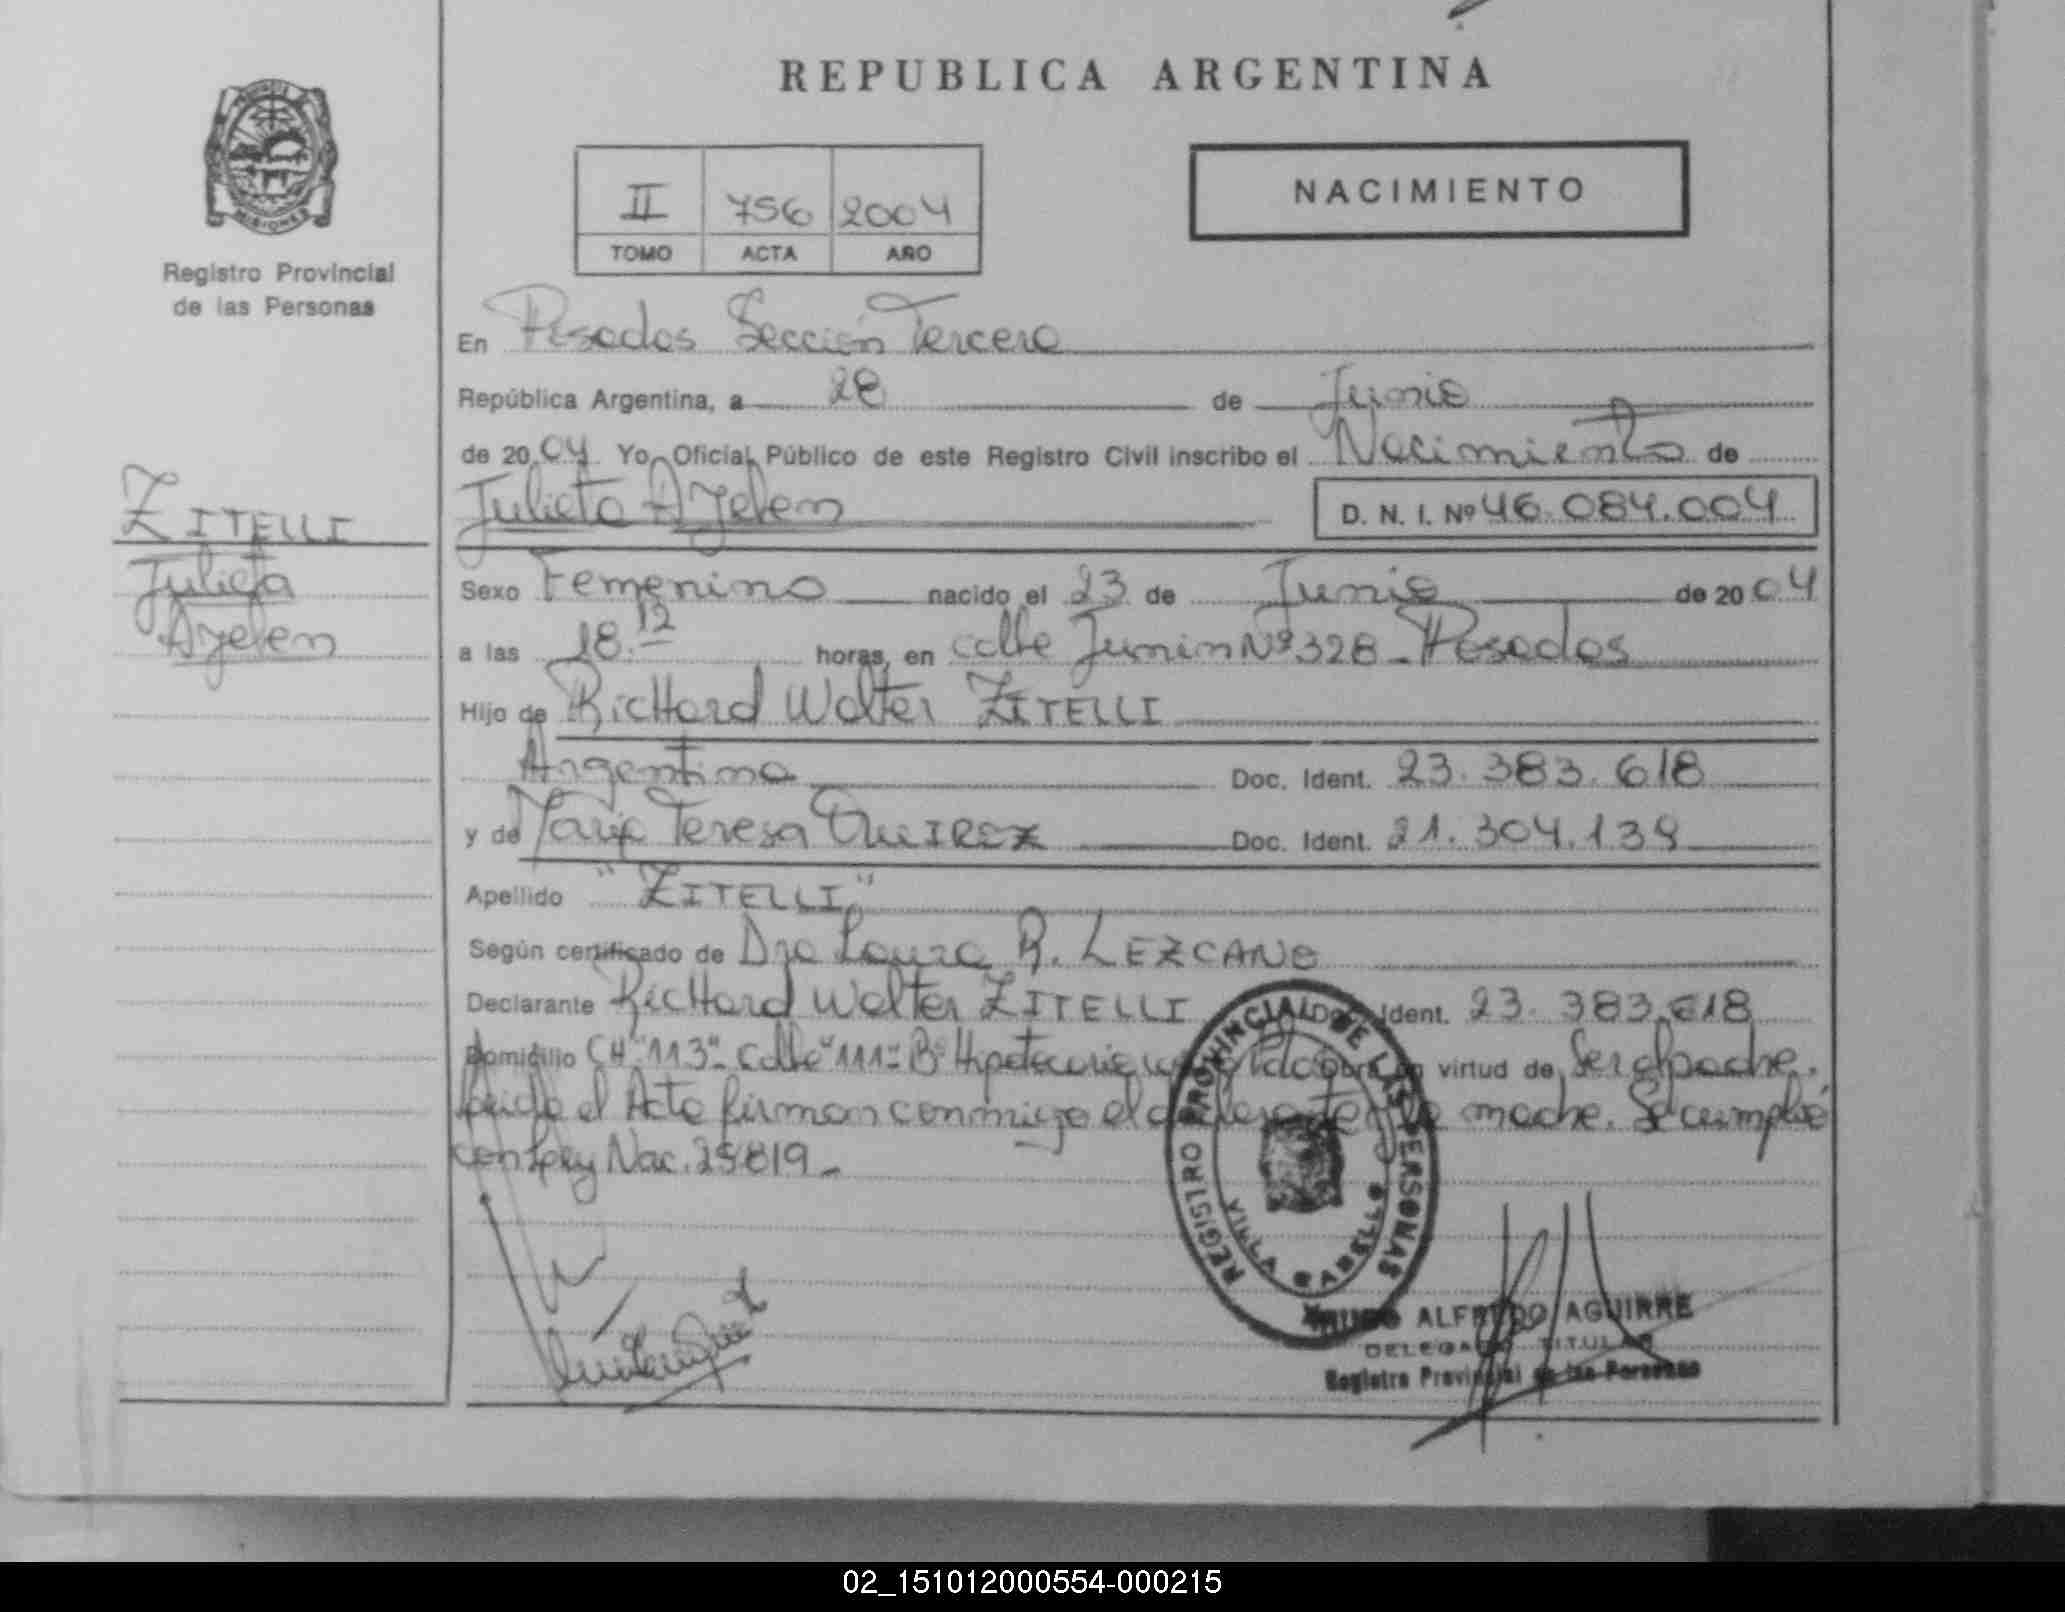 REPUBLICA ARGENTINA
MISIONES
Registro Provincial
de las Personas
II 756 2004
TOMO ACTA AÑO
NACIMIENTO
En Posadas Sección Tercera
República Argentina, a 28 de Junio
de 2004 Yo, Oficial Público de este Registro Civil inscribo el Nacimiento de
Julieta Ayelen D. N. I. Nº 46.084.004
ZITELLI
Julieta
Ayelen
Sexo Femenino nacido el 23 de Junio de 2004
a las 18.12 horas, en calle Junin Nº 328 - Posadas
Hijo de Richard Walter ZITELLI
Argentina Doc. Ident. 23.383.618
y de Maria Teresa QUIREZ Doc. Ident. 21.304.139
Apellido "ZITELLI"
Según certificado de Dra Laura R. LEZCANO
Declarante Richard Walter ZITELLI Doc. Ident. 23.383.618
Domicilio CH "113" - calle "111" - Bº Hipotecario Obra en virtud de Ser el padre.
Leida el Acta firman conmigo el declarante y la madre. Se cumplió
con Ley Nac. 25819 -
REGISTRO PROVINCIAL DE LAS PERSONAS
VILLA CABELLO
ALFREDO AGUIRRE
DELEGADO TITULAR
Registro Provincial de las Personas
02_151012000554-000215